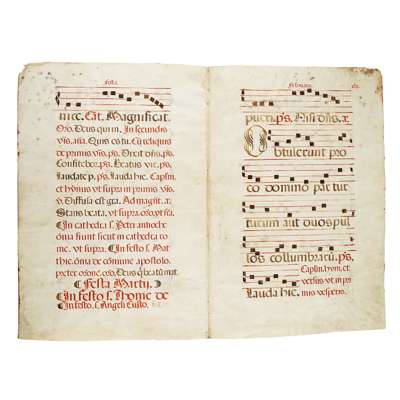 Festa
niec. Eāt. Magnificat.
Oro. Deus qui in. In secundis
vis. aña. Quis es tu. Cū reliquis
de primis vis. ps. Dixit dñs. ps.
Confitebor. ps. Beatus vir. ps.
Laudate p. ps. Lauda hie. Caplm.
et hymnus ut supra in primis vis.
v. Diffusa est gra. Ad magnificat. a.
Stans beata. ut supra
In cathedra s. Petri antipho
ona fiunt sicut in cathedra
me. ut supra. In festo s. Mat
thie. omīa de comune apostolo.
preter Deus q̄ beato mat.
Festa Martii.
In festo s. Thome de
In festo. s. Angeli Custo.
Februarii.
pueri. ps. Nisi dñs. a.
Obtulerunt pro
eo domino par tur
turum aut duos pul
los collumbarū. ps.
Caplm. hym. et
versus ut in pri
Lauda hie. mis vesperis.